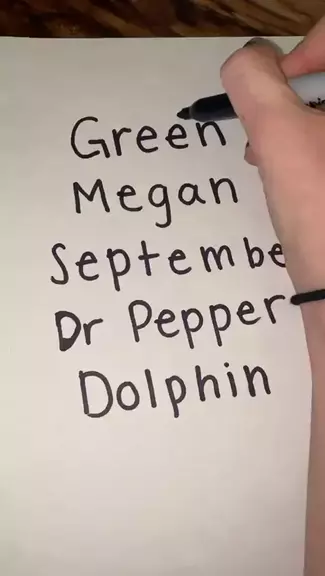 Green
Megan
Septembe
Dr Pepper
Dolphin